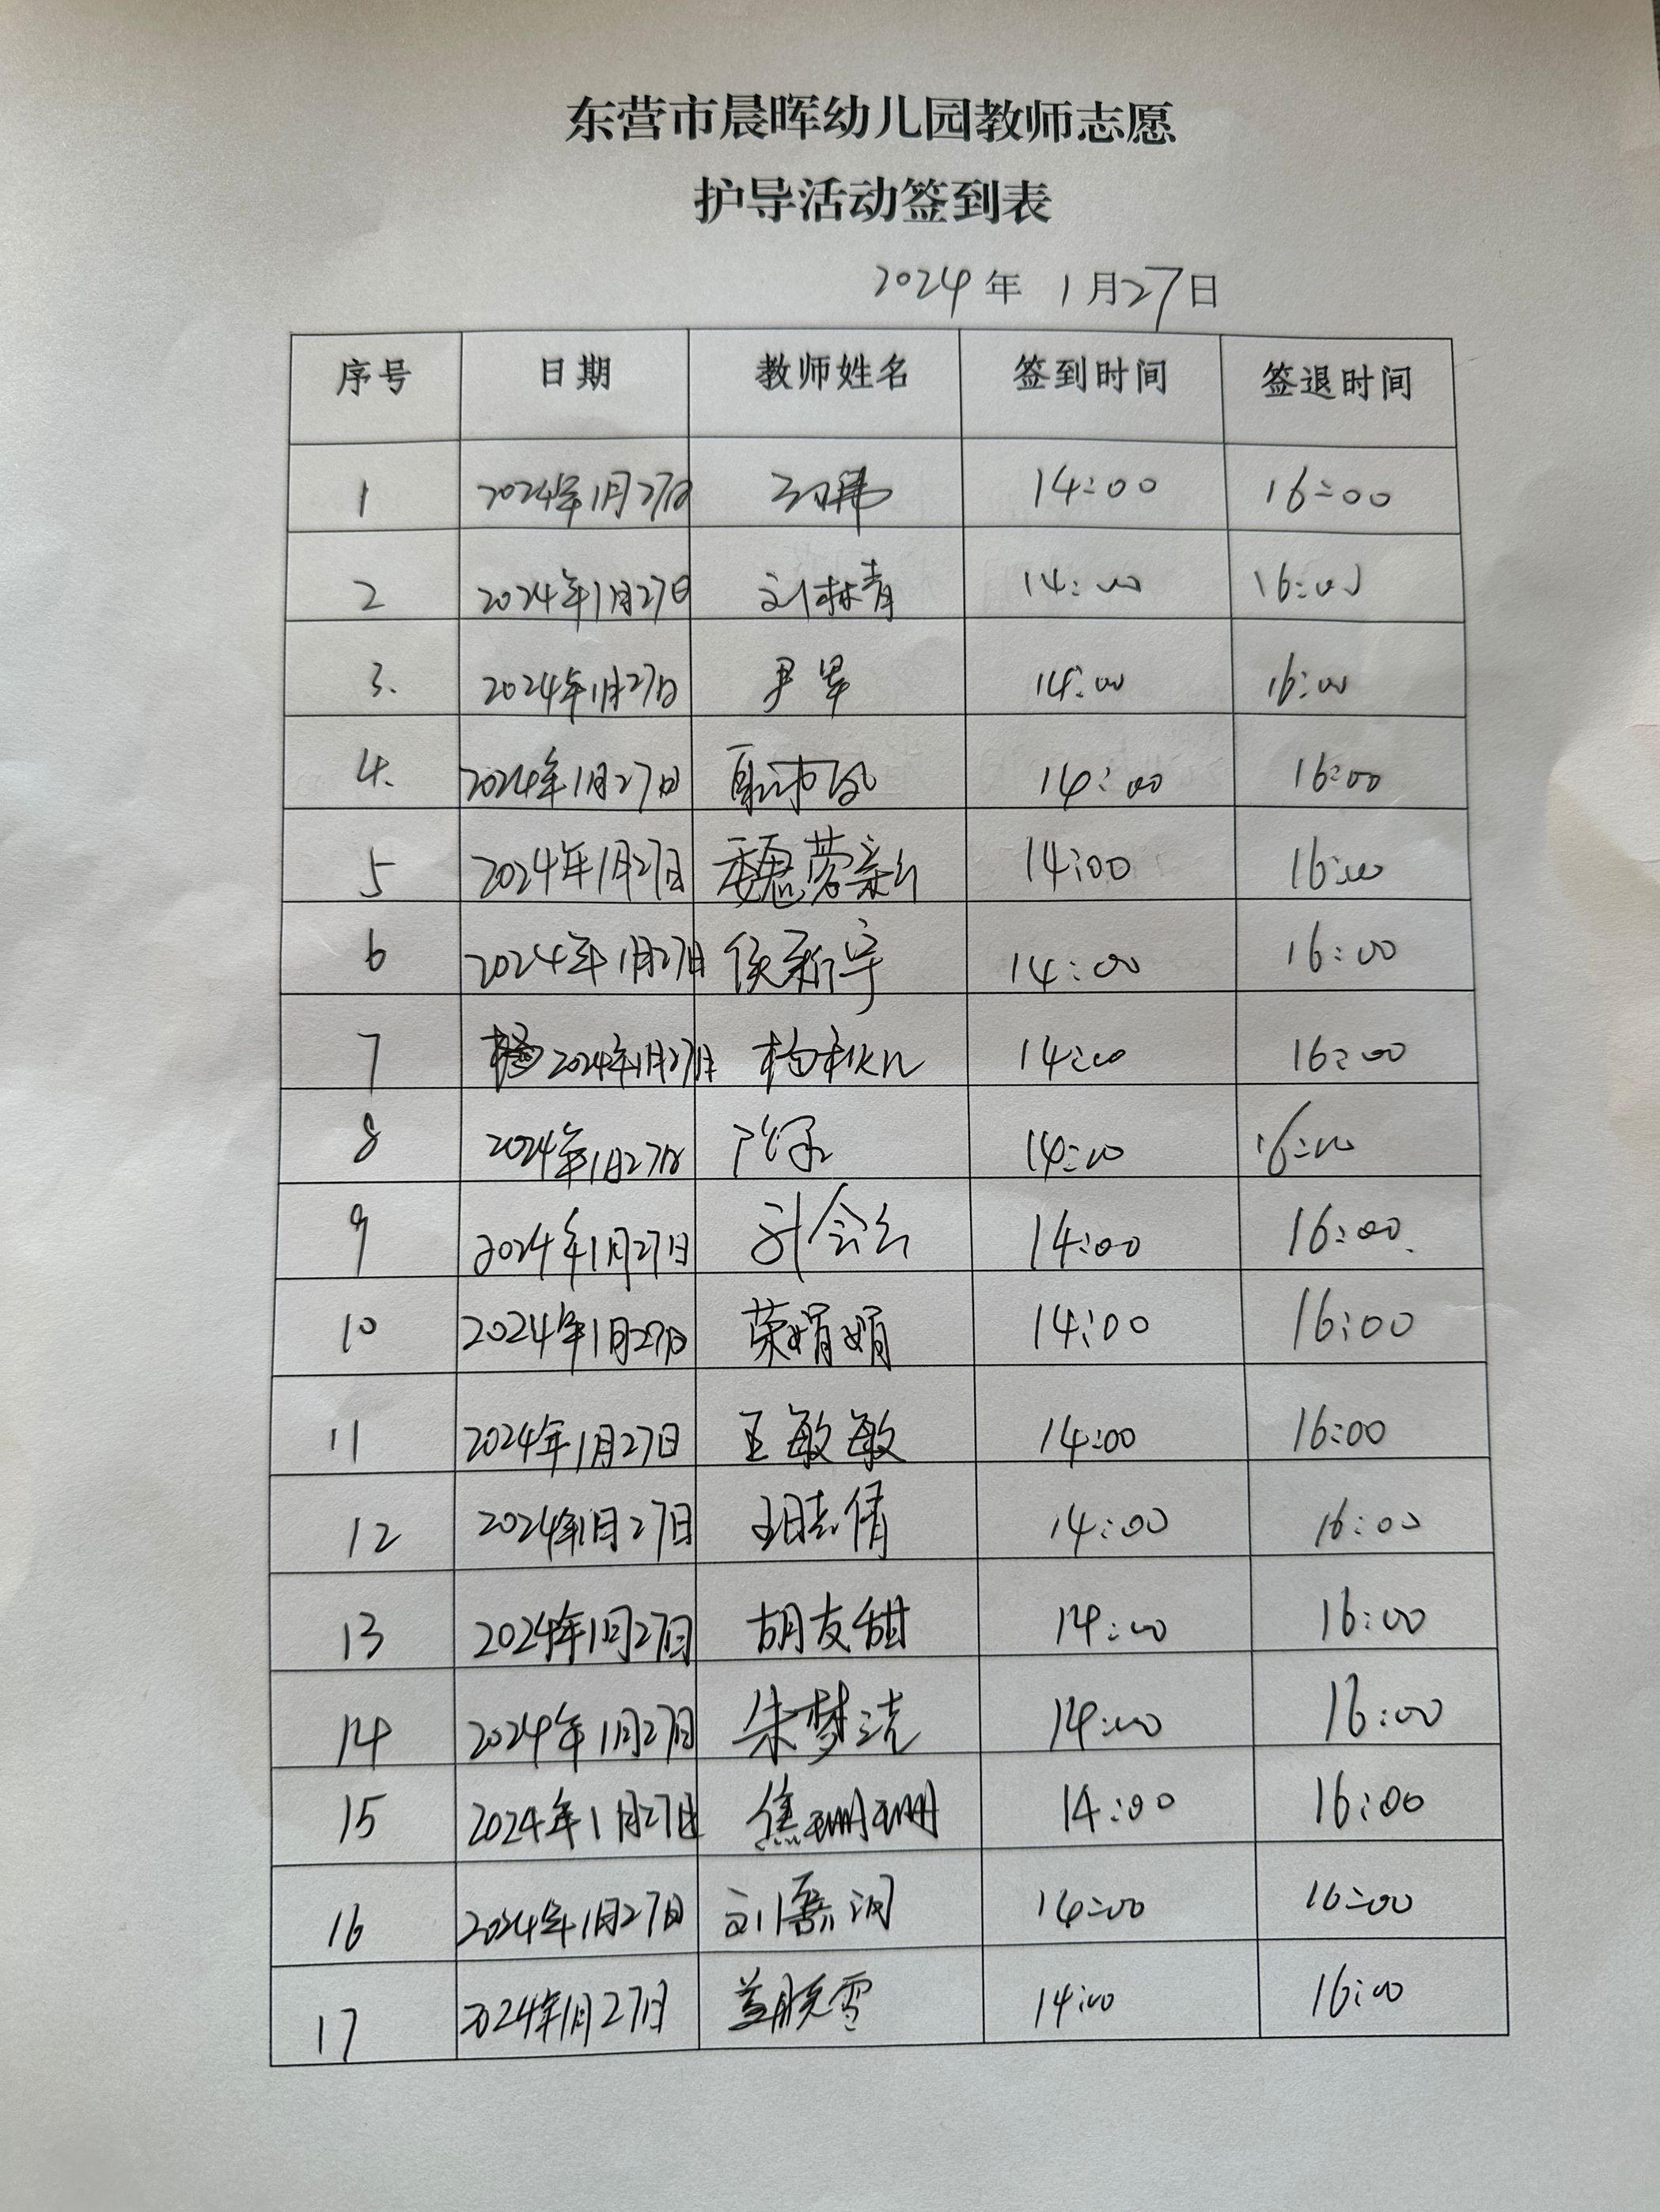 东营市晨晖幼儿园教师志愿
护导活动签到表
2024年 1月27日
序号 日期 教师姓名 签到时间 签退时间
1 2024年1月27日 14:00 16:00
2 2024年1月27日 刘林青 14:00 16:00
3. 2024年1月27日 尹 14:00 16:00
4. 2024年1月27日 14:00 16:00
5 2024年1月27日 魏 14:00 16:00
6 2024年1月27日 侯新宇 14:00 16:00
7 2024年1月27日 杨秋 14:00 16:00
8 2024年1月27日 14:00 16:00
9 2024年1月27日 14:00 16:00
10 2024年1月27日 荣娟娟 14:00 16:00
11 2024年1月27日 王敏敏 14:00 16:00
12 2024年1月27日 倩 14:00 16:00
13 2024年1月27日 胡友甜 14:00 16:00
14 2024年1月27日 朱梦洁 14:00 16:00
15 2024年1月27日 焦珊珊 14:00 16:00
16 2024年1月27日 刘 14:00 16:00
17 2024年1月27日 盖晓雪 14:00 16:00